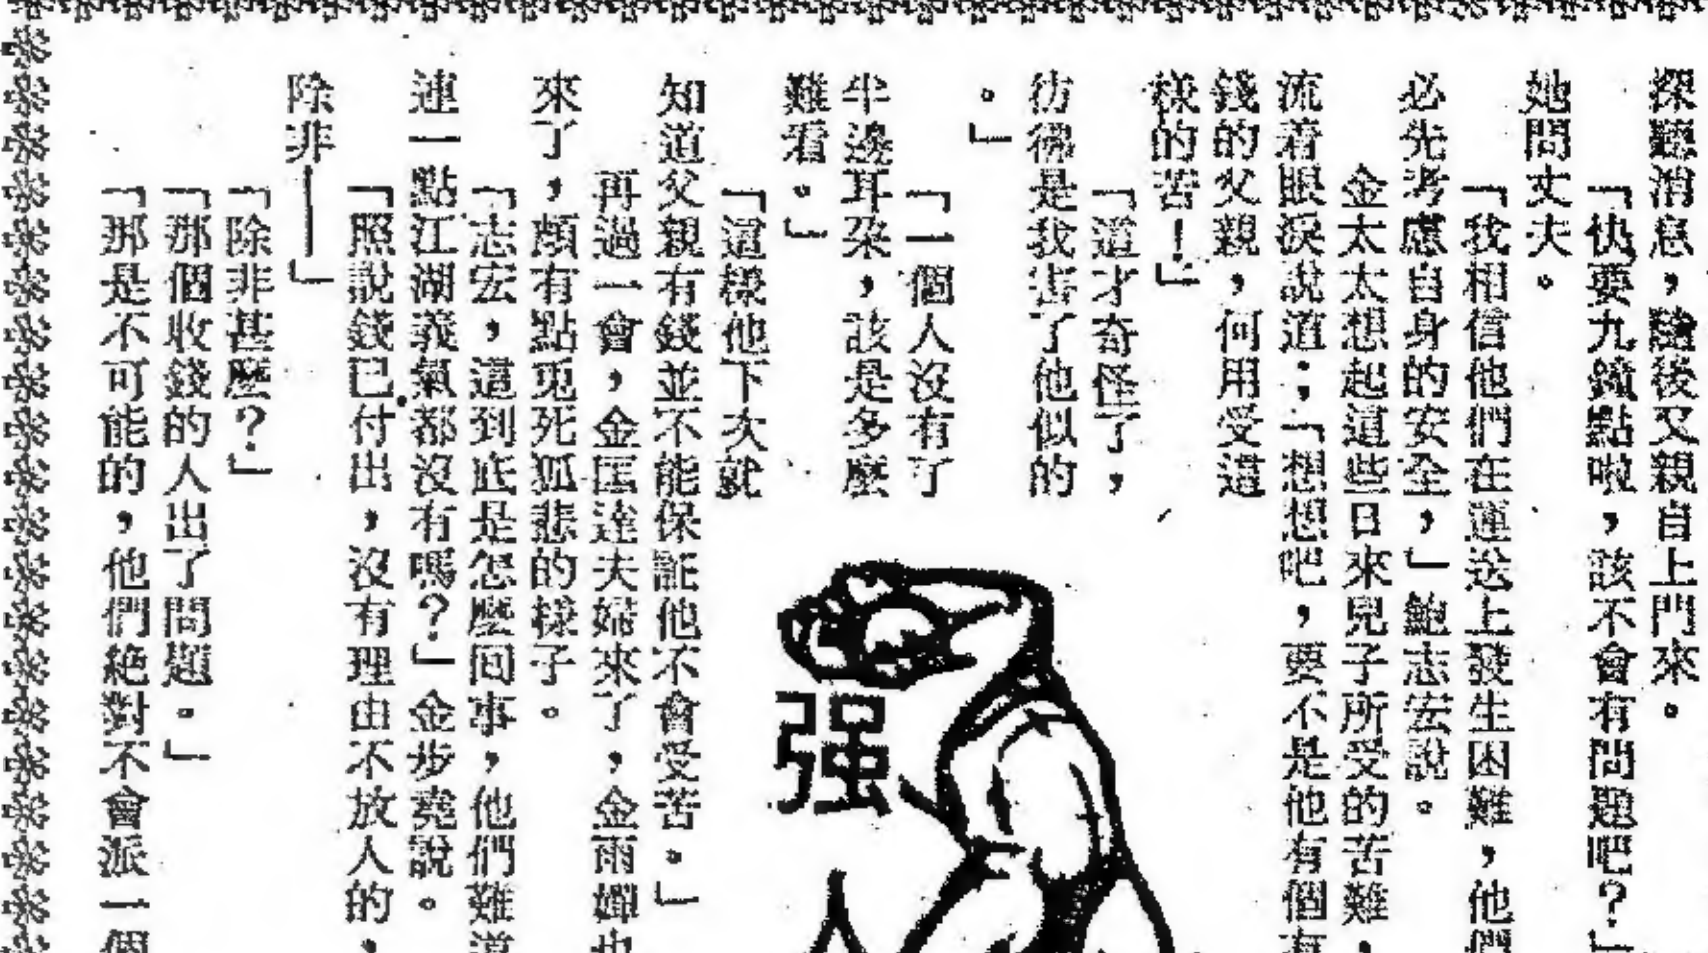 探聽消息，隨後又親自上門來。
「快要九鐘點啦，該不會有問題吧？」
她問丈夫。
「我相信他們在運送上發生困難，他們
必先考慮自身的安全，」鮑志宏說。
金太太想起這些日來兒子所受的苦難，
流着眼淚說道；「想想吧，要不是他有個有
錢的父親，何用受這
樣的苦！」
「這才奇怪了，
彷彿是我害了他似的
。」
「一個人沒有了
半邊耳朶，該是多麼
難看。」
「這樣他下次就
知道父親有錢並不能保証他不會受苦。」
再過一會，金匡達夫婦來了，金雨嬋也
來了，頗有點兎死狐悲的樣子。
「志宏，這到底是怎麼囘事，他們難道
連一點江湖義氣都沒有嗎？」金步堯說。
「照說錢已付出，沒有理由不放人的，
除非——」
「除非甚麼？」
「那個收錢的人出了問題。」
「那是不可能的，他們絕對不會派一個
强
人